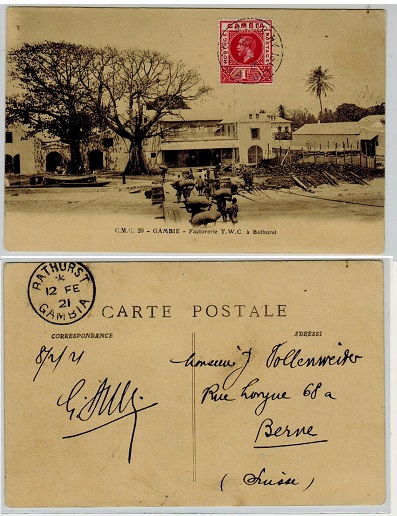 GAMBIA
POSTAGE POSTAGE
1D
C.M.C. 20 - GAMBIE - Factorerie T.W.C. à Bathurst
BATHURST
12 FE
21
GAMBIA
CARTE POSTALE
CORRESPONDENCE
ADRESSE
8/2/21
Monsieur J Vollenweider
Rue Longue 68 a
Berne
(Suisse)